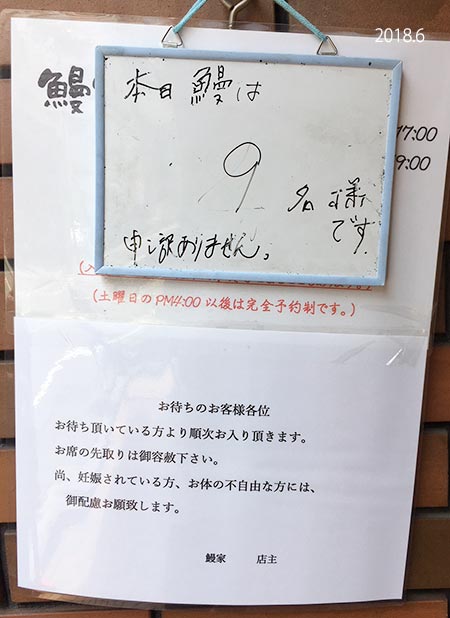 2018.6
鰻
本日 鰻は
9
名様
です
申し訳ありません。
17:00
9:00
(土曜日のPM4:00以後は完全予約制です。)
お待ちのお客様各位
お待ち頂いている方より順次お入り頂きます。
お席の先取りは御容赦下さい。
尚、妊娠されている方、お体の不自由な方には、
御配慮お願致します。
鰻家 店主